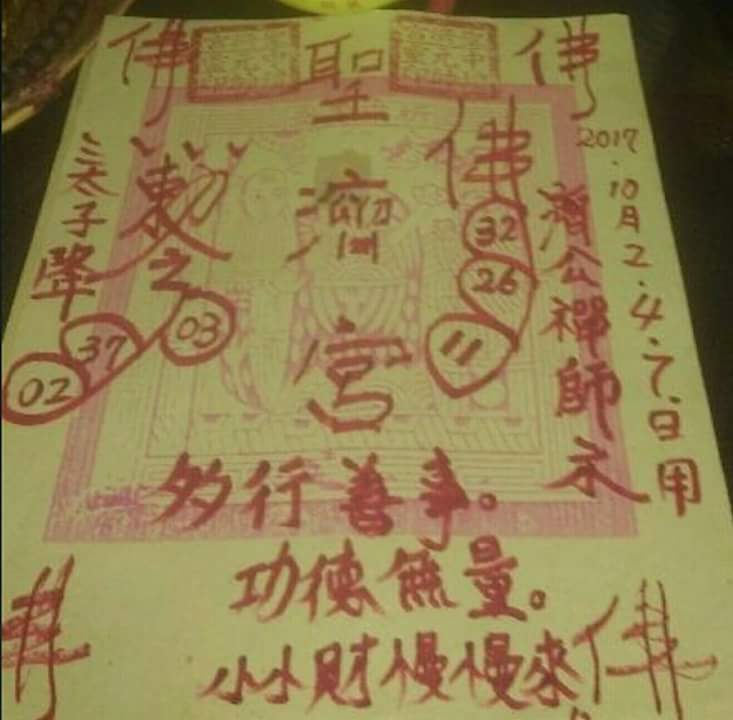 佛 聖 佛
2017.10月2.4.7.日用
濟公禪師示
佛
32
26
11
濟
宮
勅
之
03
三太子
37
02
多行善事。
功德無量。
小小財慢慢來
佛
佛